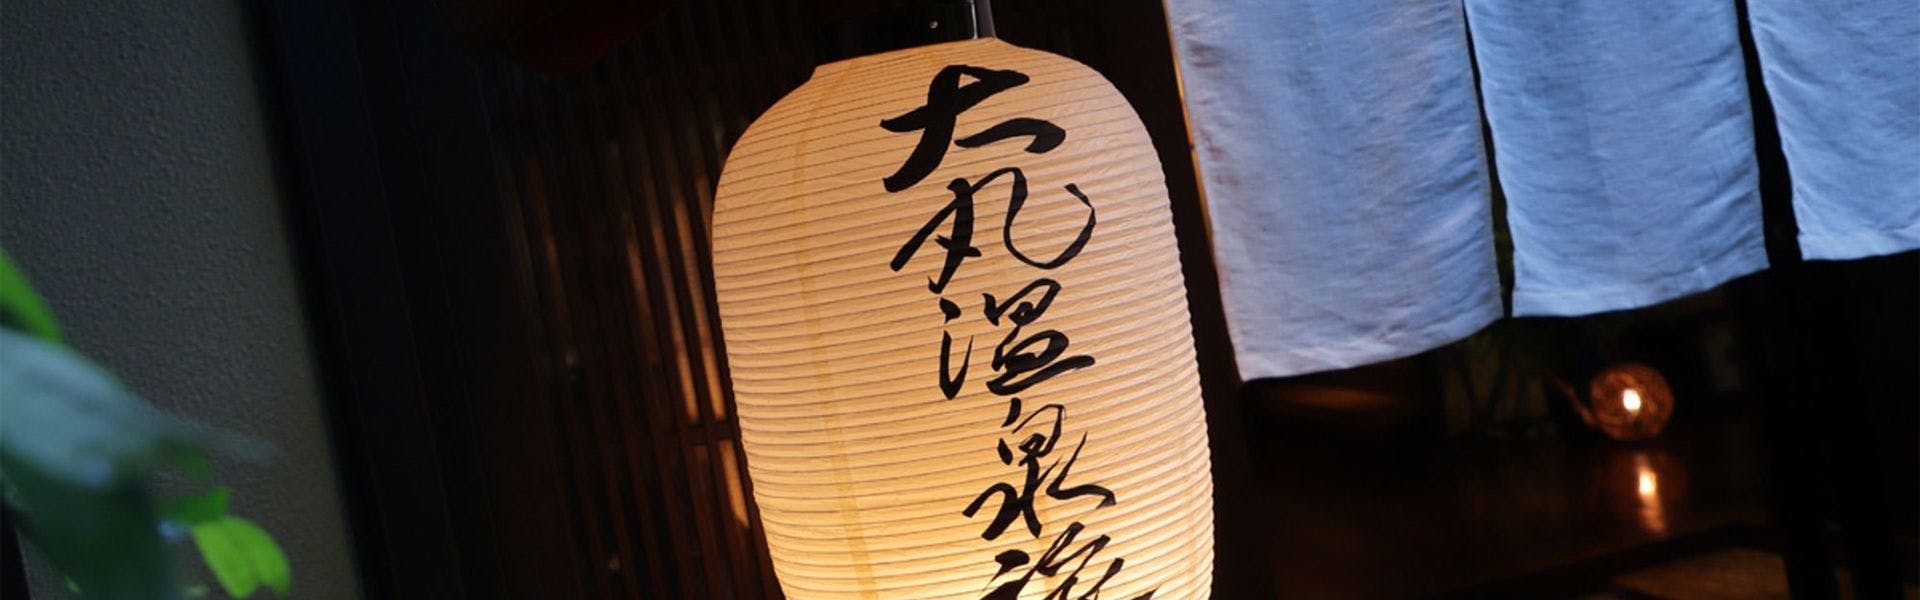 大丸温泉旅